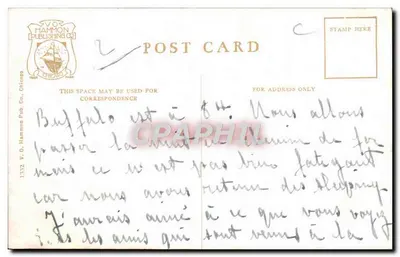 V.O.
HAMMON
PUBLISHING CO.
CHICAGO
POST CARD
STAMP HERE
THIS SPACE MAY BE USED FOR
CORRESPONDENCE
FOR ADDRESS ONLY
CPARAMA
Buffalo est à 84. Nous allons
passer la nuit chemin de fer
mais ce n'est pas bien fatigant
car nous avons retenu des sleeping
J'aurais aimé à ce que vous voyez
des amis qui sont venus à la
V. O. Hammon Pub. Co., Chicago